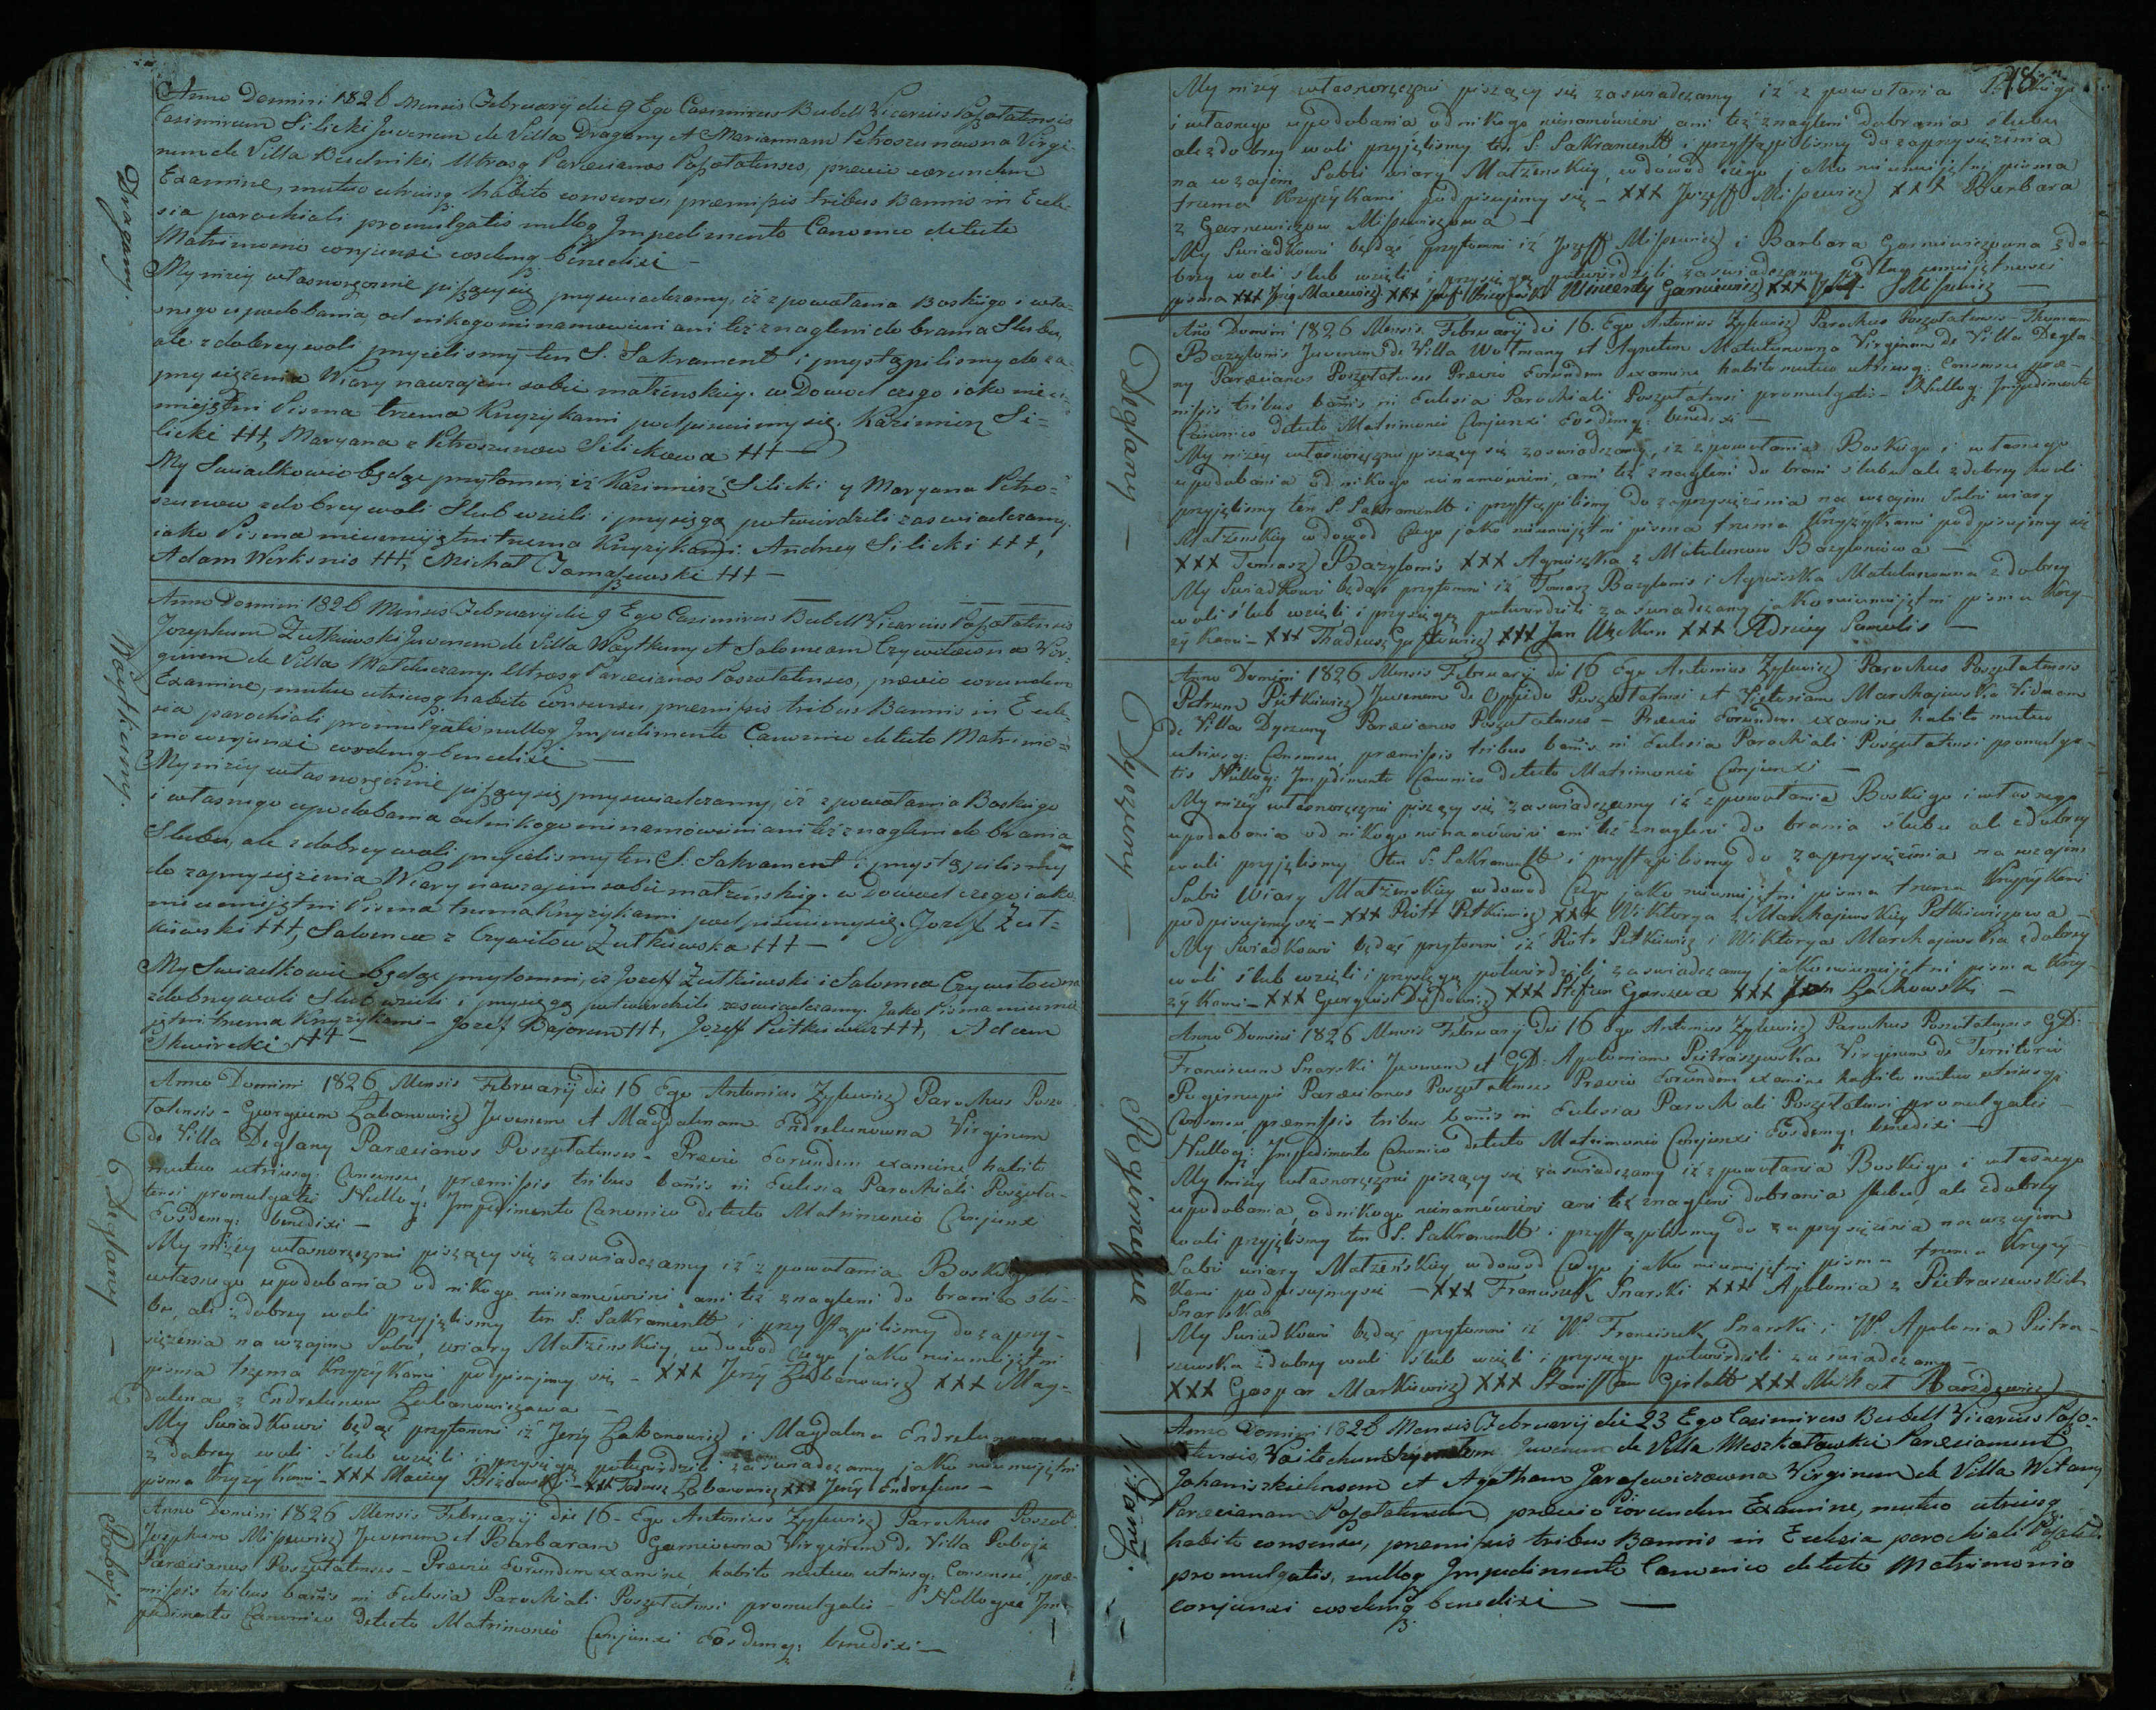 Dragumy.
Anno Domini 1826 Mensis Februarij die 9 Ego Casimirus Bubell Vicarius Poszołatensis
Casimirum Silicki Juvenem de Villa Dragumy et Mariannam Petroszunowna Virgi-
nem de Villa Budniki Utrosq Paræcianos Poszołatenses, prævio eorundem
Examine, mutuo utriusq habito consensu, præmissis tribus Bannis in Eccle-
sia parochiali promulgatis nulloq Impedimento Canonico detecto
Matrimonio conjunxi eosdemq benedixi —
My niżey własnoręcznie piszący się przyswiadczamy, iż z powołania Boskiego i wła-
snego upodobania, od nikogo nienamowieni ani też znagleni do brania Slubu,
ale z dobrey woli przyielismy ten S. Sakrament i przystąpilismy do za-
przysiężenia Wiary nawzajem sobie małżenskiey. w Dowod czego iako nieu-
mieiętni Pisma trzema Krzyzykami podpisuiemy się. Kazimierz Si-
licki +++, Maryana z Petroszunow Silickowa +++ —
My Swiadkowie będąc przytomni, iż Kazimierz Silicki y Maryana Petro-
szunow z dobrey woli Slub wzieli i przysięgą potwierdzili zaswiadczamy.
iako Pisma nieumiejętni trzema Krzyzykami. Andrzey Silicki +++,
Adam Werksnis +++, Michał Tomaszewski +++ —
Waytkuny.
Anno Domini 1826 Mensis Februarij die 9 Ego Casimirus Bubell Vicarius Poszołatensis
Josephum Żutkiewski Juvenem de Villa Waytkuny et Salomeam Czywitowna Vir-
ginem de Villa Utrosq Paræcianos Poszołatenses, prævio eorundem
Examine, mutuo utriusq habito Consensu, præmissis tribus Bannis in Eccle-
sia parochiali promulgatis nulloq Impedimento Canonico detecto Matrimo-
nio conjunxi eosdemq benedixi —
My niżey własnoręcznie piszący się przyswiadczamy, iż z powołania Boskiego
i własnego upodobania od nikogo nienamowieni ani też znagleni do brania
Slubu, ale z dobrey woli przyielismy ten S. Sakrament i przystąpilismy
do zaprzysiężenia Wiary nawzajem sobie małżenskiey. w Dowod czego iako
nieumiejętni Pisma trzema Krzyzykami podpisuiemy się. Jozef Żut-
kiewski +++, Salomea z Czywitow Żutkiewska +++ —
My Swiadkowie będąc przytomni, iż Jozeff Żutkiewski i Salomea Czywitowna
z dobrey woli Slub wzieli i przysięgą potwierdzili zaswiadczamy. Jako Pisma nieumie-
iętni trzema Krzyzykami — Jozef Bajorun +++, Jozeff Pietkiewicz +++, Adam
Skwirecki +++ —
Deglany —
Anno Domini 1826 Mensis Februarij die 16 Ego Antonius Zylewicz Parochus Poszo-
łatensis — Georgium Łabanowicz Juvenem et Magdalenam Endrelunowna Virginem
de Villa Deglany Paræcianos Poszołatenses — Prævio Eorundem examine, habito
mutuo utriusq: Consensu, præmissis tribus bannis in Eclesia Parochiali Poszoła-
tensi promulgatis Nulloq: Impedimento Canonico detecto Matrimonio Conjunxi
Eosdemq: benedixi —
My niżey własnoręczni piszący się zaswiadczamy iż z powołania Boskiego
własnego upodobania od nikogo nienamówieni ani też znagleni do brania ślu-
bu, ale z dobrey woli przyjęlismy ten S: Sakramentt i przystąpilismy do zaprzy-
siężenia na wzajem Sobie, wiary Małżenskiey, w dowod Czego jako nieumiejętni
pisma trzema Krzyżykami podpisujemy się — XXX Jerzy Łabanowicz XXX Mag-
dalena z Endrelunow Łabanowiczowa —
My Swiadkowie będąc przytomni iż Jerzy Łabanowicz i Magdalena Endrelunowna
z dobrey woli ślub wzieli i przysięgą potwierdzili zaswiadczamy jako nieumiejętni
pisma Krzyzykami — XXX Maciey XXX Tadeusz Łabanowicz XXX Jerzy Endrelun —
Poboje
Anno Domini 1826 Mensis Februarij die 16 — Ego Antonius Zylewicz Parochus Poszoł:
Josephum Missewicz Juvenem et Barbaram Garniewna Virginem de Villa Poboje
Paræcianos Poszołatenses — Prævio Eorundem examine, habito mutuo utriusq: Consensu, præ-
missis tribus bannis in Eclesia Parochiali Poszołatensi promulgatis — Nulloque Im-
pedimento Canonico detecto Matrimonio Conjunxi Eosdemq: benedixi —
18
My niżey własnoręczni piszący się zaswiadczamy iż z powołania Boskiego
i własnego upodobania od nikogo nienamówieni ani też znagleni dobrania slubu
ale z dobrey woli przyjęlismy ten S: Sakramentt i przystąpilismy do zaprzysiężenia
na wzajem Sobie wiary Małżenskiey, w dowód czego jako nieumiejętni pisma
trzema Krzyżykami podpisujemy się — XXX Jozeff Missewicz XXX Barbara
z Garniewiczow Missewiczowa —
My Swiadkowie będąc przytomni iż Jozeff Missewicz i Barbara Garniewiczowna z do-
brey woli slub wzieli i przysięgą potwierdzili zaswiadczamy podług umiejętnosci
pisma XXX Macewicz XXX Wincenty Garniewicz XXX Missewicz —
Deglany —
Anno Domini 1826 Mensis Februarij die 16. Ego Antonius Zylewicz Parochus Poszołatensis — Thomam
Bazylonis Juvenem de Villa Wotmany et Agnetem Matulunowna Virginem de Villa Degla-
ny Paræcianos Poszołatenses Prævio Eorundem examine habito mutuo utriusq: Consensu præ-
missis tribus bannis in Eclesia Parochiali Poszołatensi promulgatis — Nulloq: Impedimento
Canonico detecto Matrimonio Conjunxi Eosdemq: benedixi —
My niżey własnoręczni piszący się zaswiadczamy, iż z powołania Boskiego i własnego
upodobania od nikogo nienamówieni, ani też znagleni do brani slubu ale z dobrey woli
przyjęlismy ten S. Sakramentt i przystąpilismy do zaprzysiężenia na wzajem Sobie wiary
Małżenskiey w dowod Czego jako nieumiejętni pisma trzema Krzyżykami podpisujemy się
XXX Tomasz Bazylonis XXX Agnieszka z Matulunow Bazyloniowa —
My Swiadkowie będąc przytomni iż Tomasz Bazylonis i Agnieszka Matulunowna z dobrey
woli ślub wzieli i przysięgą potwierdzili zaswiadczamy jako nieumiejętni pisma Krzy-
żykami — XXX Thadeusz XXX Jan XXX Adrzey Samulis —
Dyrzuny —
Anno Domini 1826 Mensis Februarij die 16 Ego Antonius Zylewicz Parochus Poszołatensis
Petrum Pitkiewicz Juvenem de Oppido Poszołatensi et Victoriam Marchajewska Viduam
de Villa Paræcianos Poszołatenses — Prævio Eorundem examine habito mutuo
utriusq: Consensu, præmissis tribus bannis in Eclesia Parochiali Poszołatensi promulga-
tis Nulloq: Impedimento Canonico detecto Matrimonio Conjunxi —
My niżey własnoręczni piszący się zaswiadczamy iż z powołania Boskiego i własnego
upodobania od nikogo nienamówieni ani też znagleni do brania ślubu al z dobrey
woli przyjęlismy ten S: Sakramentt i przystąpilismy do zaprzysiężenia na wzajem
Sobie Wiary Małżenskiey w dowod Czego jako nieumiejętni pisma trzema Krzyżykami
podpisujemy się — XXX Piotr Pitkiewicz XXX Wiktorya z Marchajewskiey Pitkiewiczowa —
My Swiadkowie będąc przytomni iż Piotr Pitkiewicz i Wiktorya Marchajewska z dobrey
woli ślub wzieli i przysięgą potwierdzili zaswiadczamy jako nieumiejętni pisma Krzy-
żykami — XXX XXX Stefan XXX Jan Żochowski —
Pogirnupie —
Anno Domini 1826 Mensis Februarij die 16 Ego Antonius Zylewicz Parochus Poszołatensis GD:
Franciscum Snarski Juvenem et GD: Apoloniam Pietraszewska Virginem de Territorio
Pogirnupie Paræcianos Poszołatenses Prævio Eorundem examine habito mutuo utriusq:
Consensu, præmissis tribus bannis in Eclesia Parochiali Poszołatensi promulgatis —
Nulloq: Impedimento Canonico detecto Matrimonio Conjunxi Eosdemq: benedixi —
My niżey własnoręczni piszący się zaswiadczamy iż z powołania Boskiego i własnego
upodobania, od nikogo nienamówieni ani też znagleni dobrania slubu, ale z dobrey
woli przyjęlismy ten S. Sakramentt i przystąpilismy do zaprzysiężenia na wzajem
Sobie wiary Małżenskiey w dowod Czego jako nieumiejętni pisma trzema Krzyży-
kami podpisujemy się — XXX Franciszek Snarski XXX Apolonia z Pietraszewskich
Snarska
My Swiadkowie będąc przytomni iż W: Franciszek Snarski i W. Apolonia Pietra-
szewska z dobrey woli slub wzieli i przysięgę potwierdzili zaswiadczamy —
XXX Gaspar Markiewicz XXX Stanisław Girtott XXX Michał
Witany.
Anno Domini 1826 Mensis Februarij die 23 Ego Casimirus Bubell Vicarius Poszo-
łatensis, Juvenem de Villa Meszkatowski Paræcianum
Johaniszkielensem et Agatham Jarassewiczowna Virginem de Villa Witany
Paræcianam Poszołatensem prævio eorundem Examine, mutuo utriusq
habito consensu, præmissis tribus Bannis in Eclesia parochiali Poszołat.
promulgatis, nulloq Impedimento Canonico detecto Matrimonio
conjunxi eosdemq benedixi —